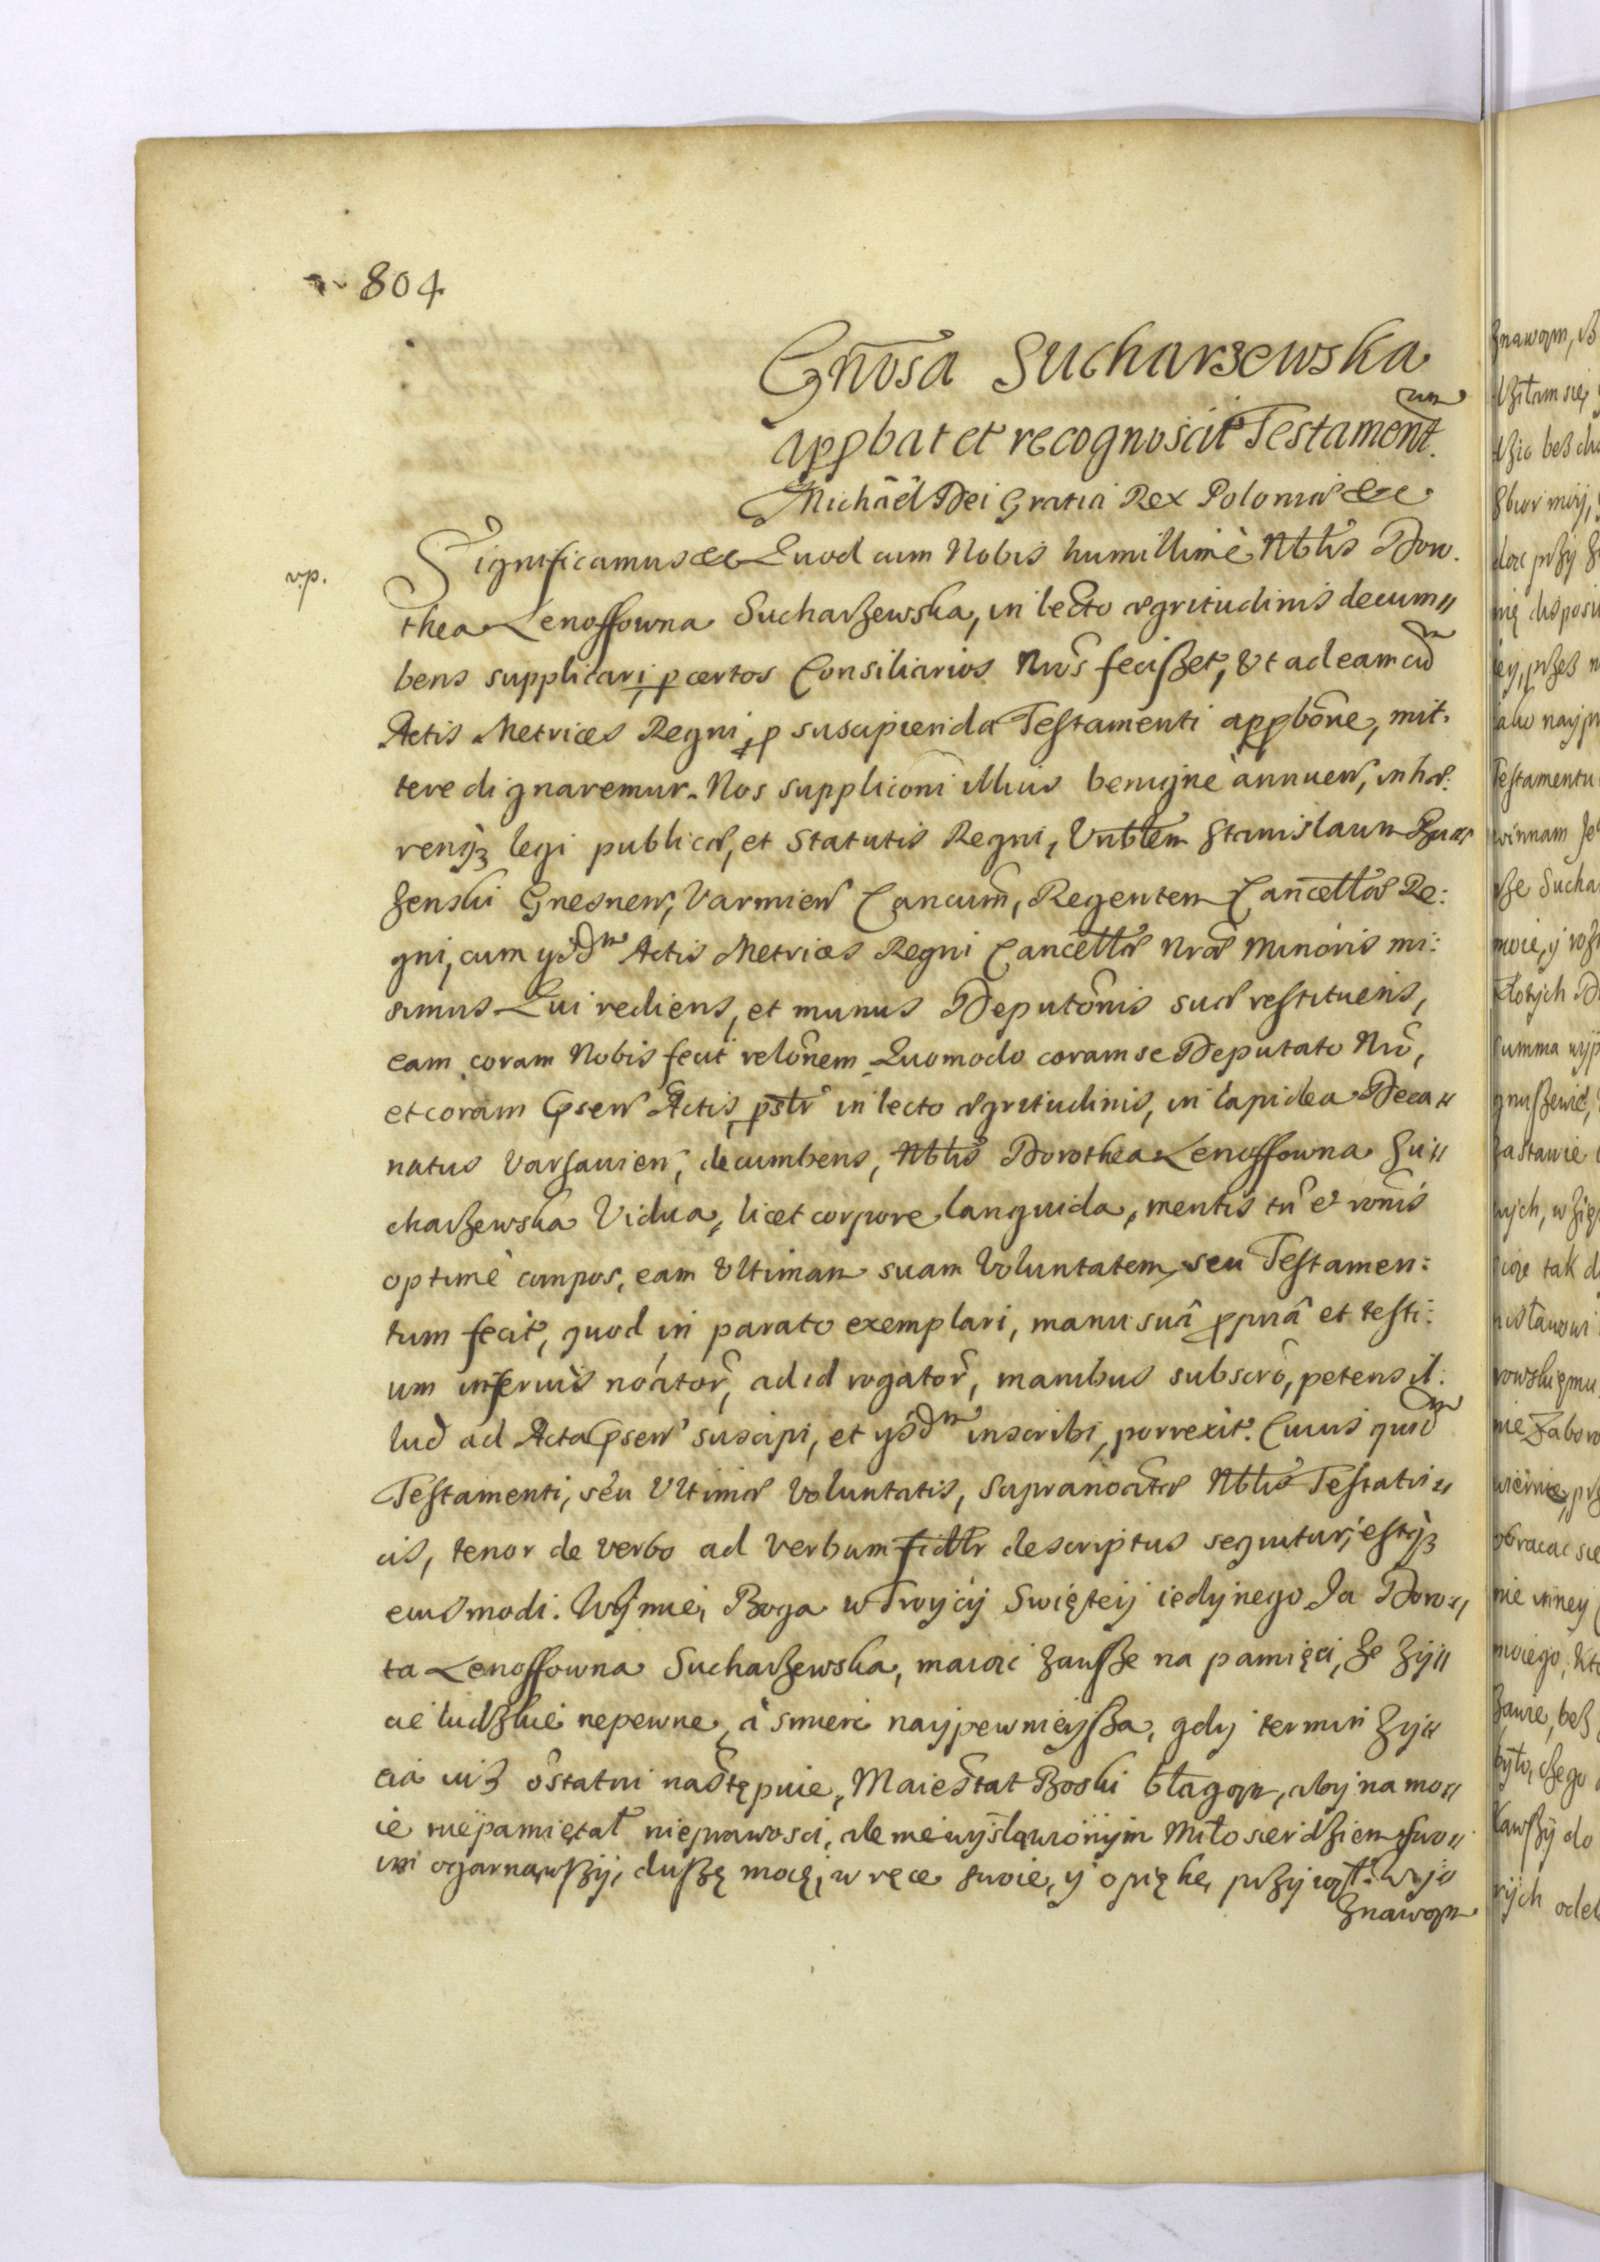 804
Gnosa Sucharzewska
appbat et recognoscit Testament um
Michael Dei Gratia Rex Poloniæ &c
v.p.
Significamus &c Quod cum Nobis humillimè Nblis Doro.
thea Lenoffowna Sucharzewska, in lecto ægritudinis decum=
bens supplicari, p certos Consiliarios Nros fecisset, Ut ad eam cum
Actis Metrices Regni, p suscipienda Testamenti appbone, mit.
tere dignaremur. Nos suppliconi illius benignè annuen, inhæ:
renq3 legi publicæ, et Statutis Regni, Vnblem Stanislaum Bu
zenski Gnesnen, Varmien Cancum, Regentem Cancellæ Re:
gni, cum ysdm Actis Metrices Regni Cancellæ Nræ Minoris mi:
simus Qui rediens, et munus Deputonis suæ restituens,
eam coram Nobis fecit relonem Quomodo coram se Deputato Nro,
et coram Psen Actis, pslr in lecto ægritudinis, in lapidea Deca=
natus Varsavien, decumbens, Nblis Dorothea Lenoffowna Su=
charzewska Vidua, licet corpore languida, mentis tn et ronis
optimè compos, eam Ultimam suam Voluntatem, seu Testamen:
tum fecit, quod in parato exemplari, manu suâ ppriâ et testi:
um inferius noator, ad id rogator, manibus subscro, petens il:
lud ad Acta Psen suscipi, et ysdm inscribi, porrexit. Cuius quidm
Testamenti, seu Ultimæ Voluntatis, Supranoatæ Nblis Testatri=
cis, tenor de verbo ad verbum fidlr descriptus sequitur, estq3
eiusmodi. W Jmie, Boga w Troycy Swiętey iedynego Ja Doro=
ta Lenoffowna Sucharzewska, maiąc zausze na pamięci, ze zy=
cie ludzkie nepewne, à smierc naypewnieysza, gdy termin zy=
cia iuz ostatni następuie, Maiestat Boski błagam, aby na mo=
ie niepamiętał nieprawosci, ale niewysławionym Miłosierdziem swo=
im ogarnąwszy, duszę moię, w ręce swoie, y opiękę, przyiął. Wy
znawam